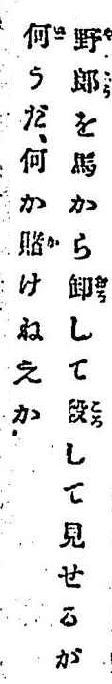 野郎を馬から卸して殺して見せるが
何うだ、何か賭けねえか。